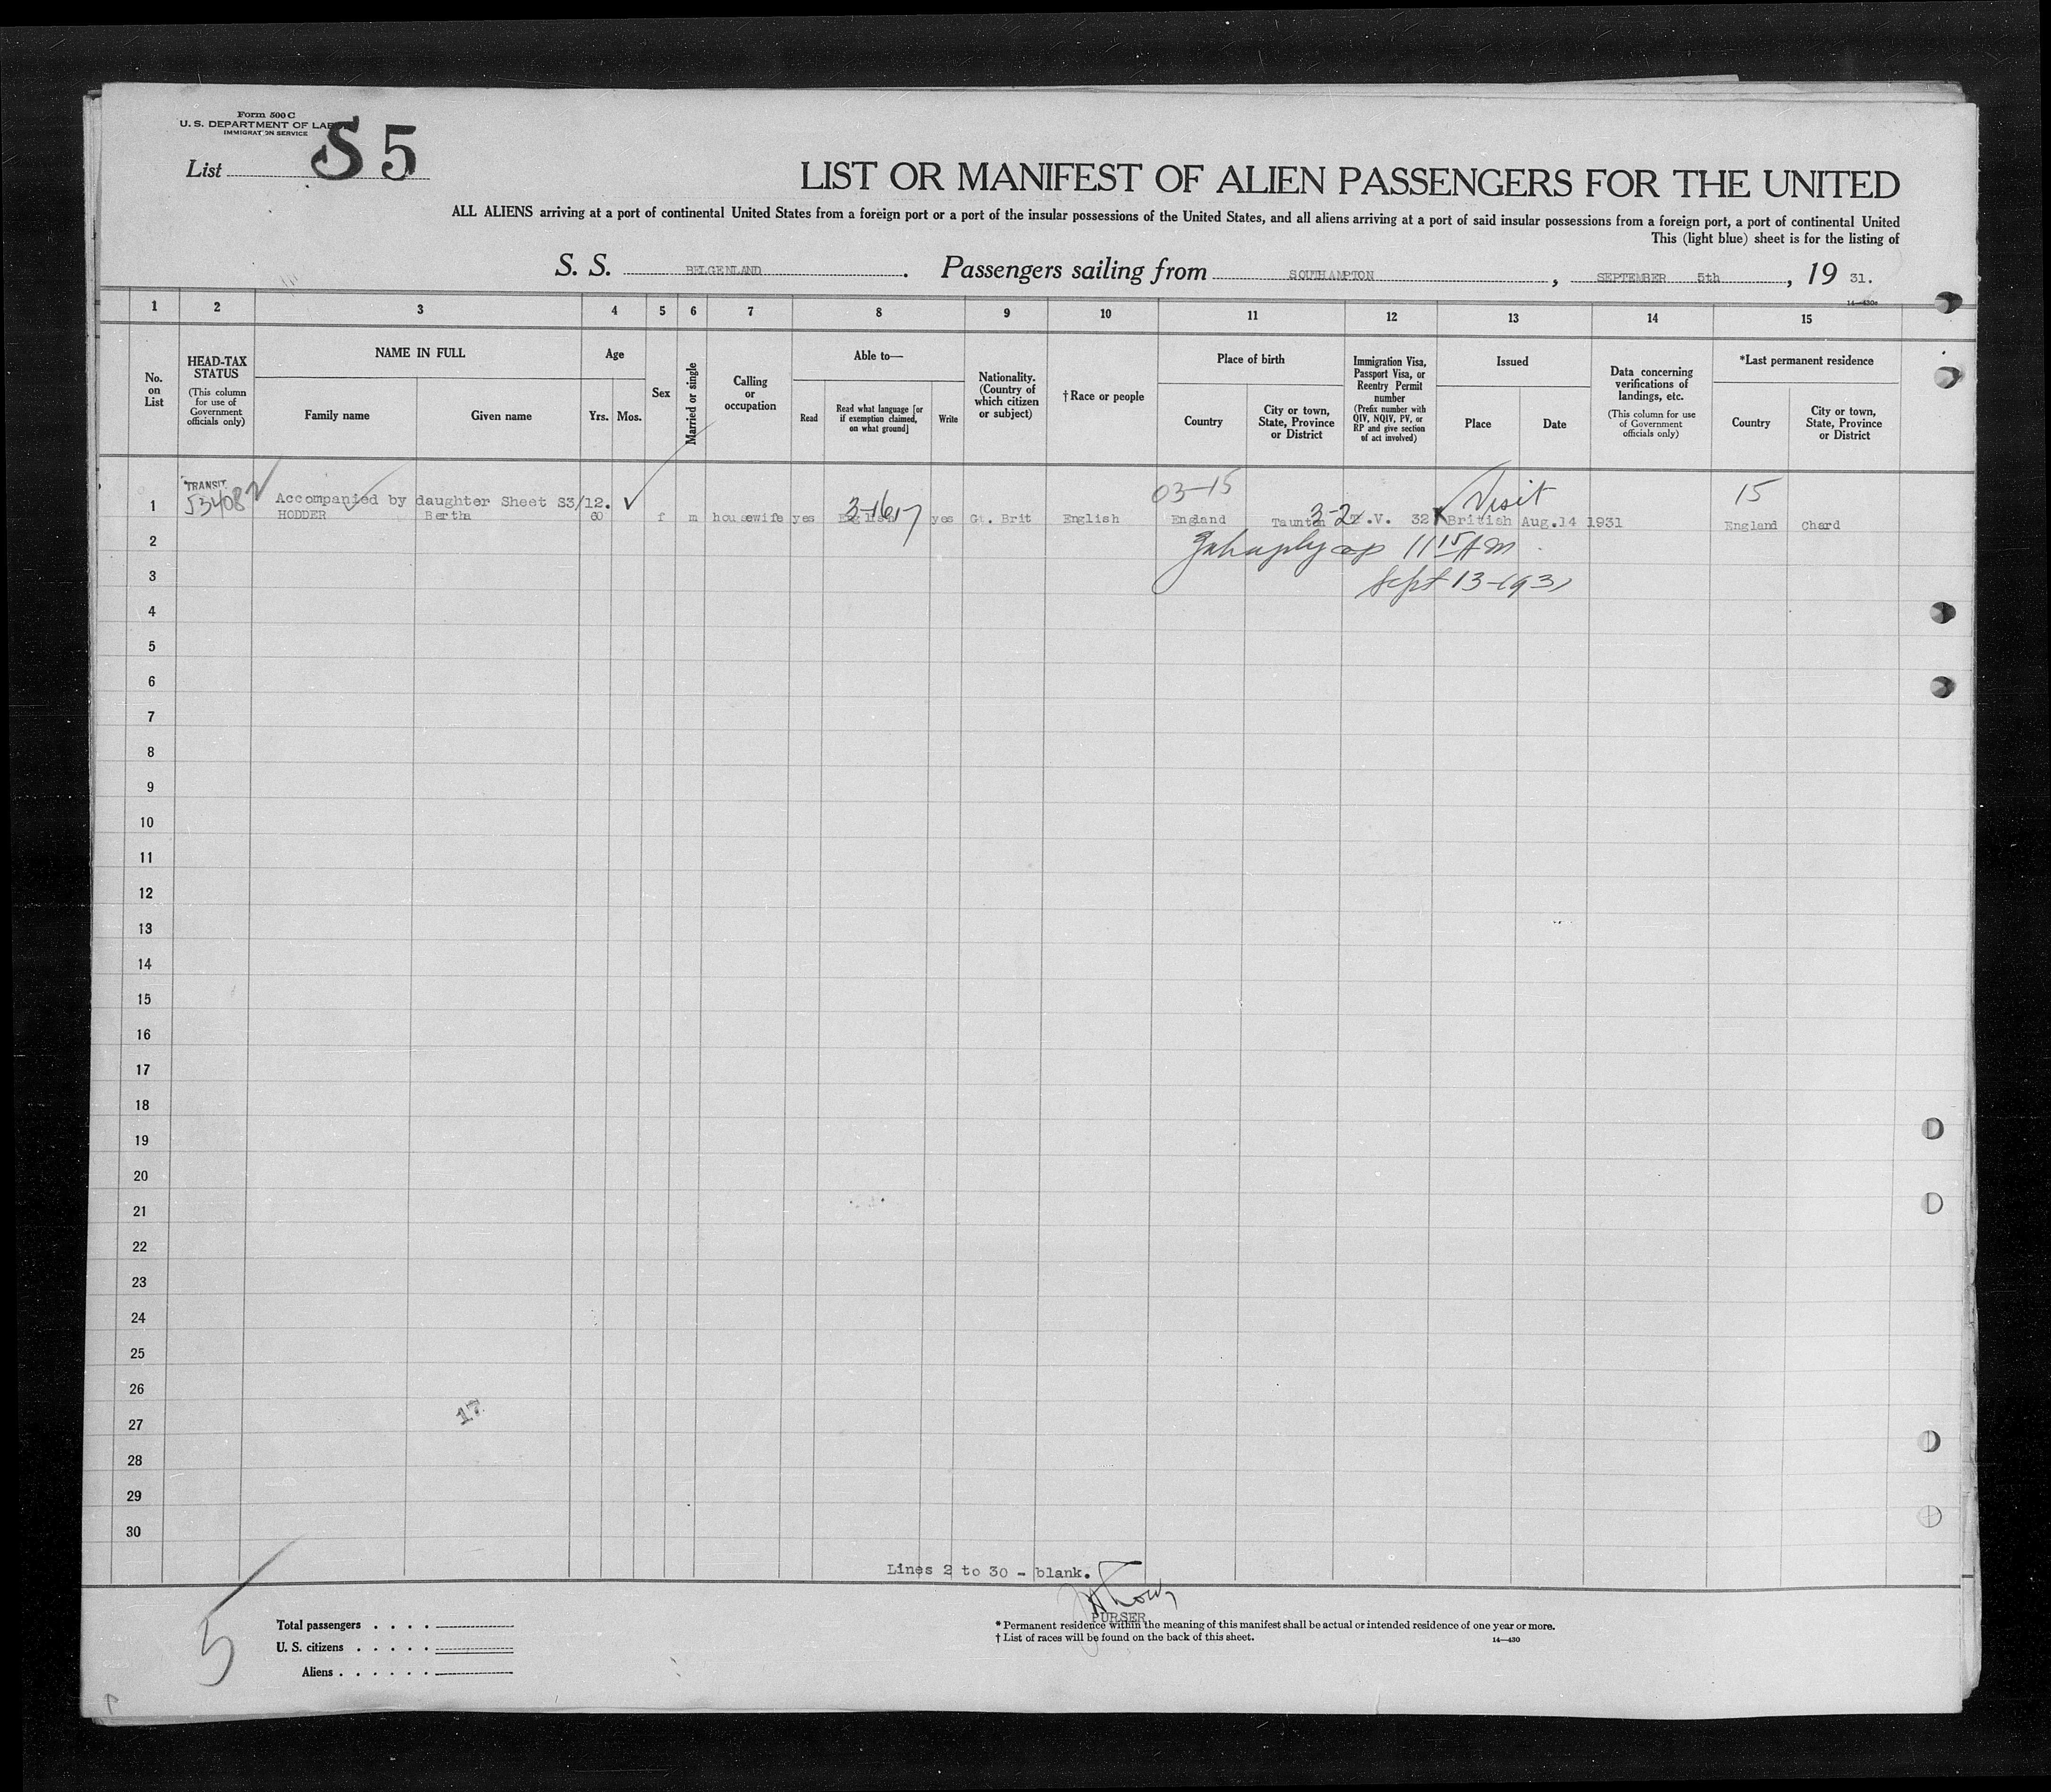 Form 500 C
U. S. DEPARTMENT OF LABOR
IMMIGRATION SERVICE
List S 5
LIST OR MANIFEST OF ALIEN PASSENGERS FOR THE UNITED
ALL ALIENS arriving at a port of continental United States from a foreign port or a port of the insular possessions of the United States, and all aliens arriving at a port of said insular possessions from a foreign port, a port of continental United
This (light blue) sheet is for the listing of
S. S. BELGENLAND. Passengers sailing from SOUTHAMPTON, SEPTEMBER 5th, 19 31.
14—430c
1 2 3 4 5 6 7 8 9 10 11 12 13 14 15
No. on List
HEAD-TAX STATUS
(This column for use of Government officials only)
NAME IN FULL
Family name
Given name
Age
Yrs. Mos.
Sex
Married or single
Calling or occupation
Able to—
Read
Read what language [or if exemption claimed, on what ground]
Write
Nationality. (Country of which citizen or subject)
† Race or people
Place of birth
Country
City or town, State, Province or District
Immigration Visa, Passport Visa, or Reentry Permit number
(Prefix number with QIV, NQIV, PV, or RP and give section of act involved)
Issued
Place
Date
Data concerning verifications of landings, etc.
(This column for use of Government officials only)
*Last permanent residence
Country
City or town, State, Province or District
TRANSIT 03-15 Visit 15
53408 Accompanied by daughter Sheet S3/12. 3-1617 3-2
1 HODDER Bertha 60 f m housewife yes English yes Gt. Brit English England Taunton T.V. 32 British Aug.14 1931 England Chard
2 11 15 AM
3 Sept 13-1931
4
5
6
7
8
9
10
11
12
13
14
15
16
17
18
19
20
21
22
23
24
25
26
27
17
28
29
30
Lines 2 to 30 - blank.
PURSER
5
Total passengers
U. S. citizens
Aliens
* Permanent residence within the meaning of this manifest shall be actual or intended residence of one year or more.
† List of races will be found on the back of this sheet.
14—430